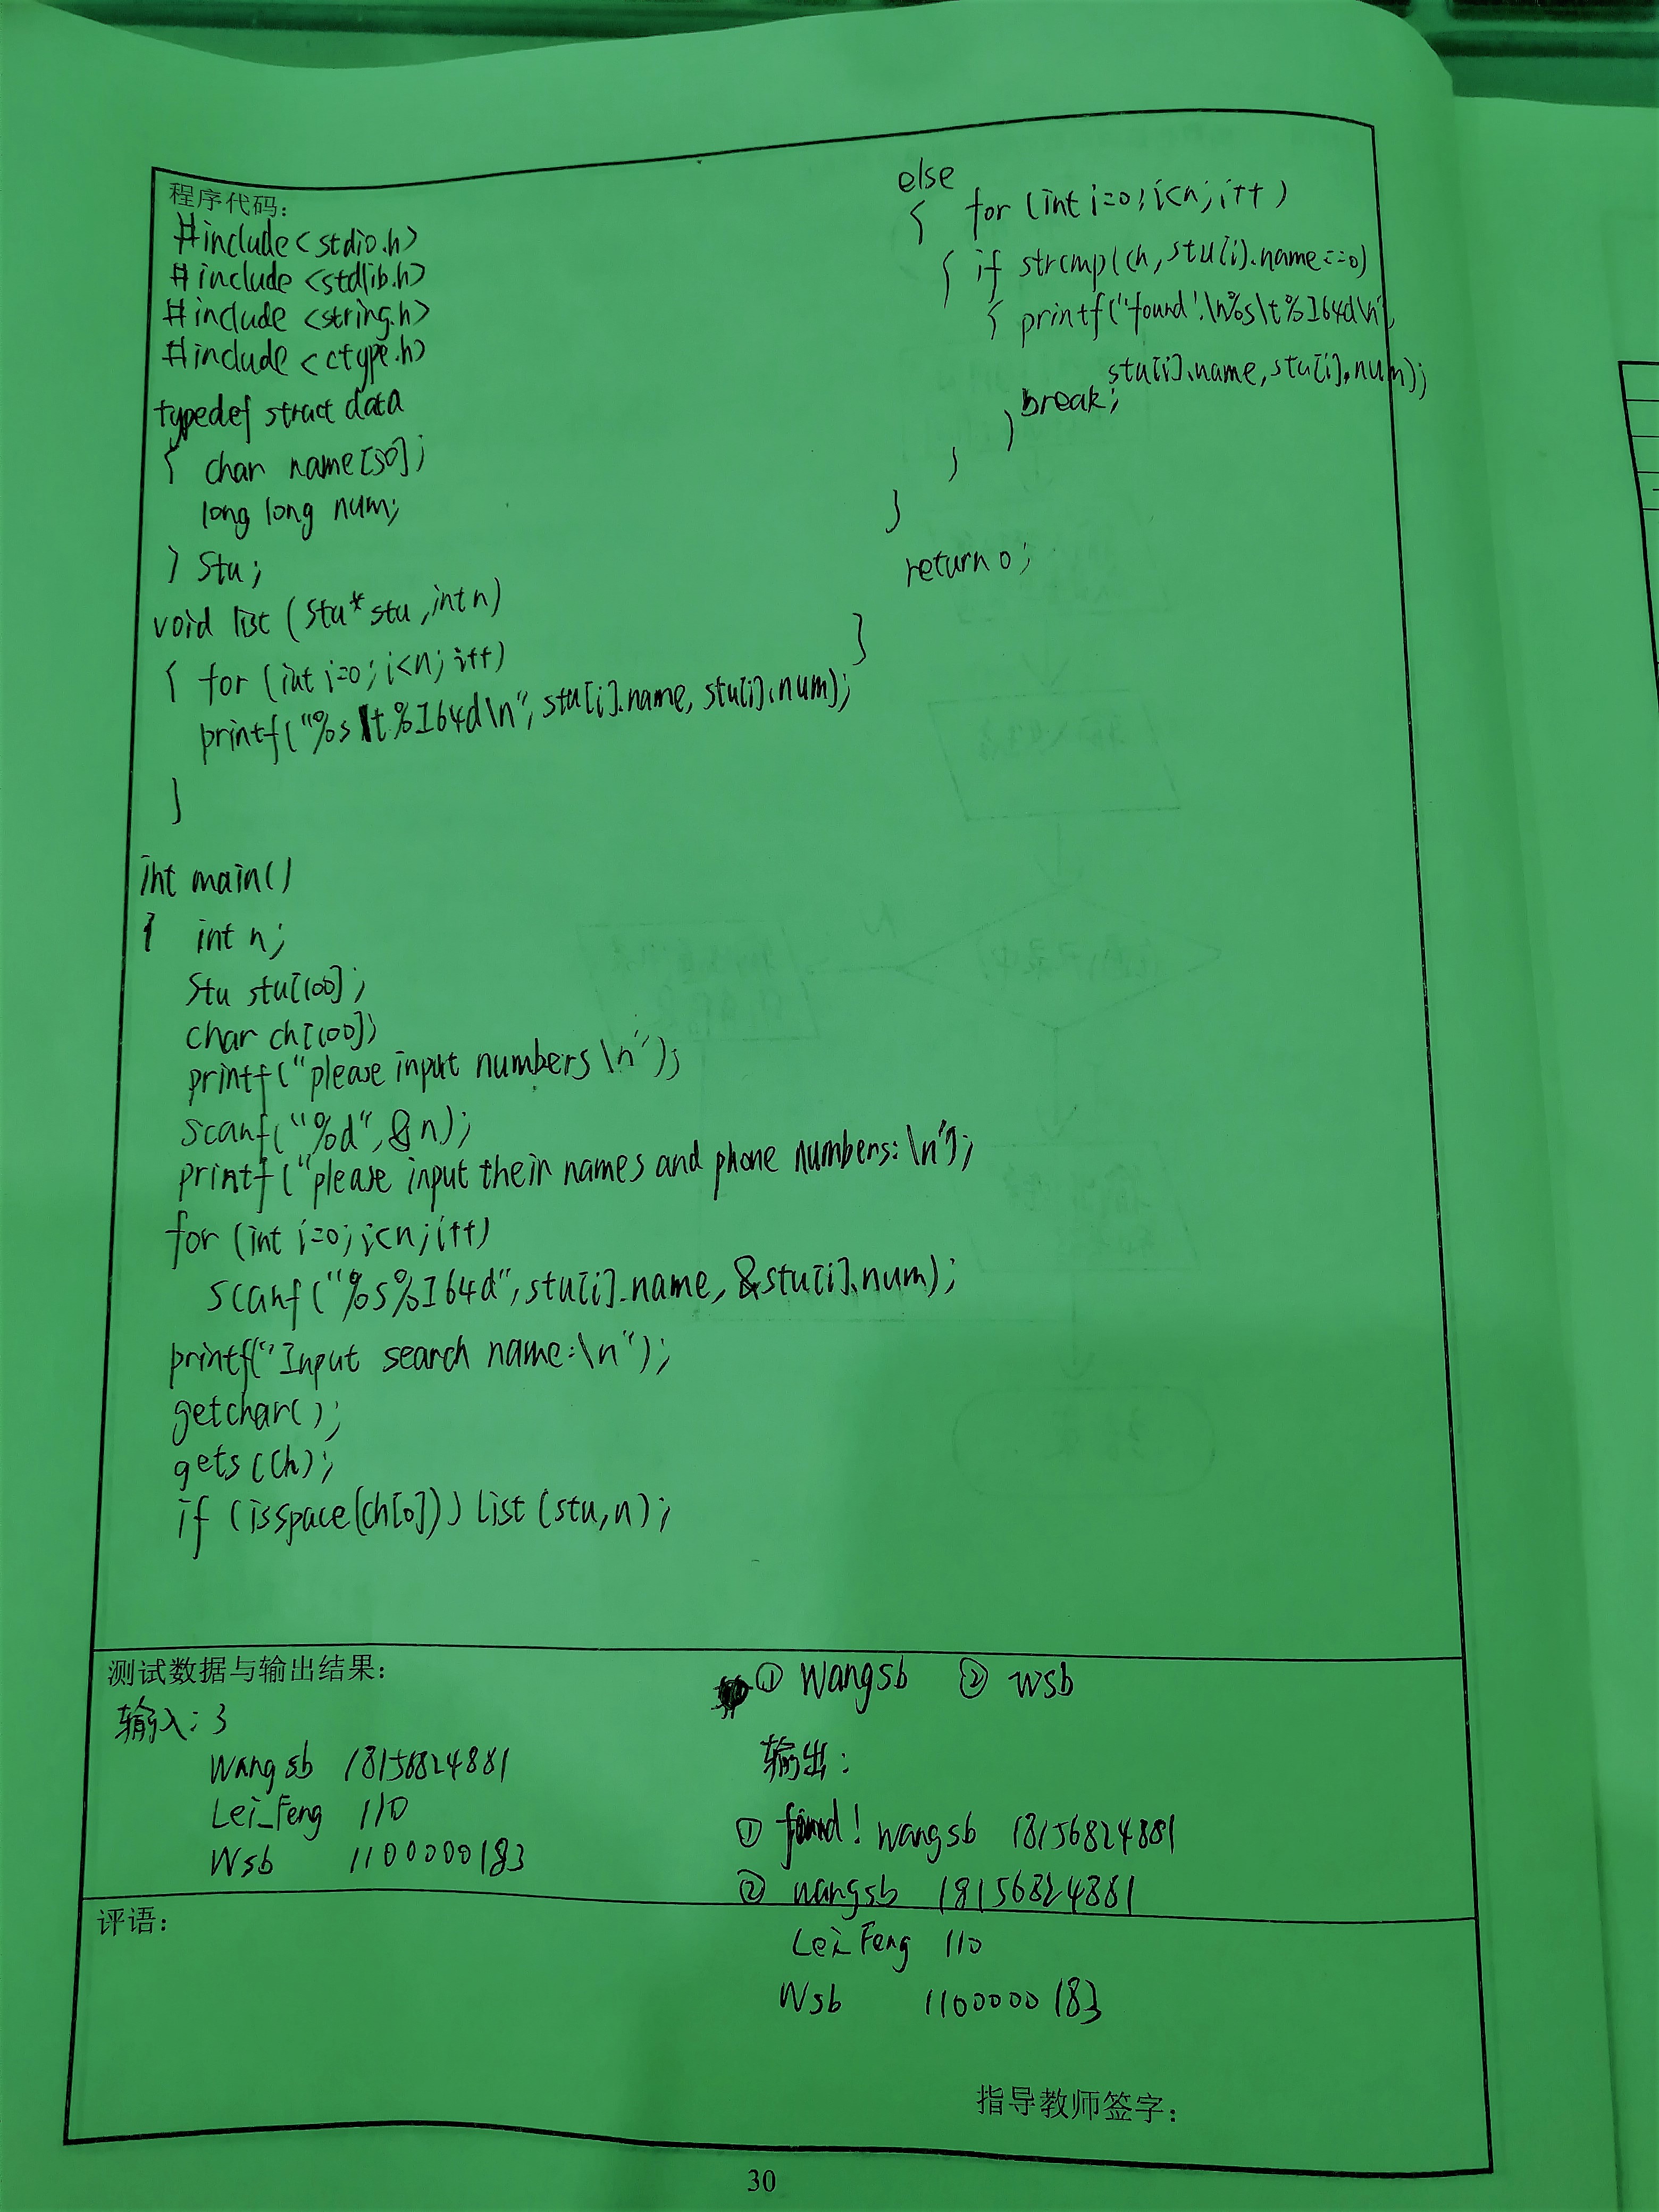 程序代码:
#include<stdio.h>
#include <stdlib.h>
#include <string.h>
#include <ctype.h>
typedef struct data
{ char name[30];
long long num;
} Stu;
void list (Stu* stu, int n)
{ for (int i=0; i<n; i++)
printf("%s\t%I64d\n", stu[i].name, stu[i].num);
}
int main()
{ int n;
Stu stu[100];
char ch[100];
printf("please input numbers\n");
scanf("%d", &n);
printf("please input their names and phone numbers: \n");
for (int i=0; i<n; i++)
scanf("%s%I64d", stu[i].name, &stu[i].num);
printf("Input search name:\n");
getchar();
gets(ch);
if (isspace(ch[0])) list (stu, n);
else
{ for (int i=0; i<n; i++)
{ if strcmp(ch, stu[i].name==0)
{ printf("found!\n%s\t%I64d\n",
stu[i].name, stu[i].num);
break;
}
}
}
return 0;
}
测试数据与输出结果:
输入: 3
Wangsb 18156824881
Lei_Feng 110
Wsb 1100000183
① Wangsb ② wsb
输出:
① found! wangsb 18156824881
② wangsb 18156824881
Lei Feng 110
Wsb 1100000183
评语:
指导教师签字:
30